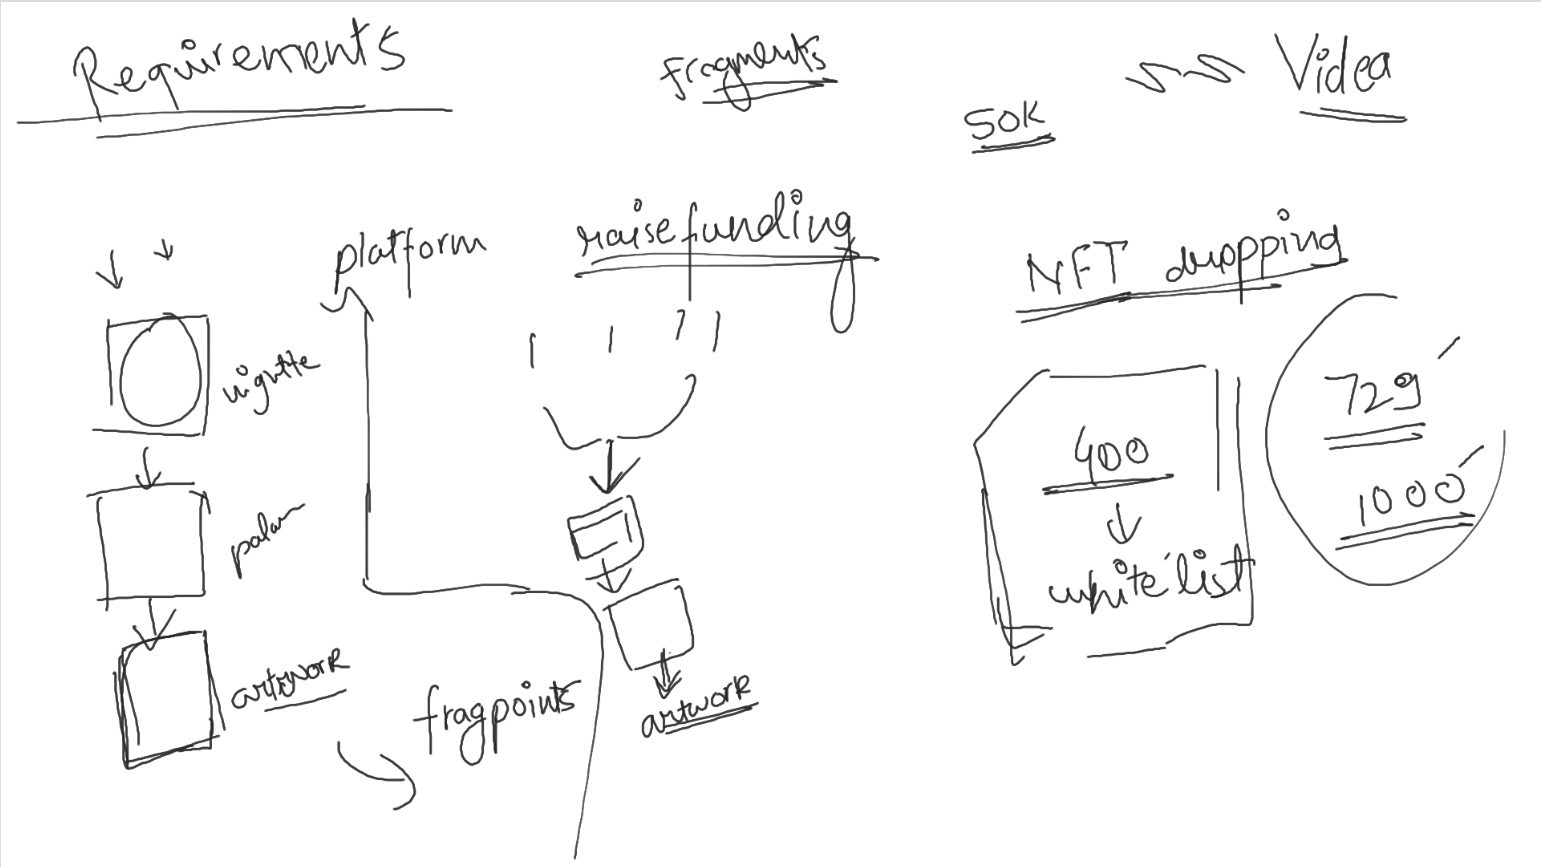 Requirements
fragments
50K
Videa
platform
raise funding
NFT dropping
vigntte
palan
artwork
fragpoints
artwork
400
white list
729
1000